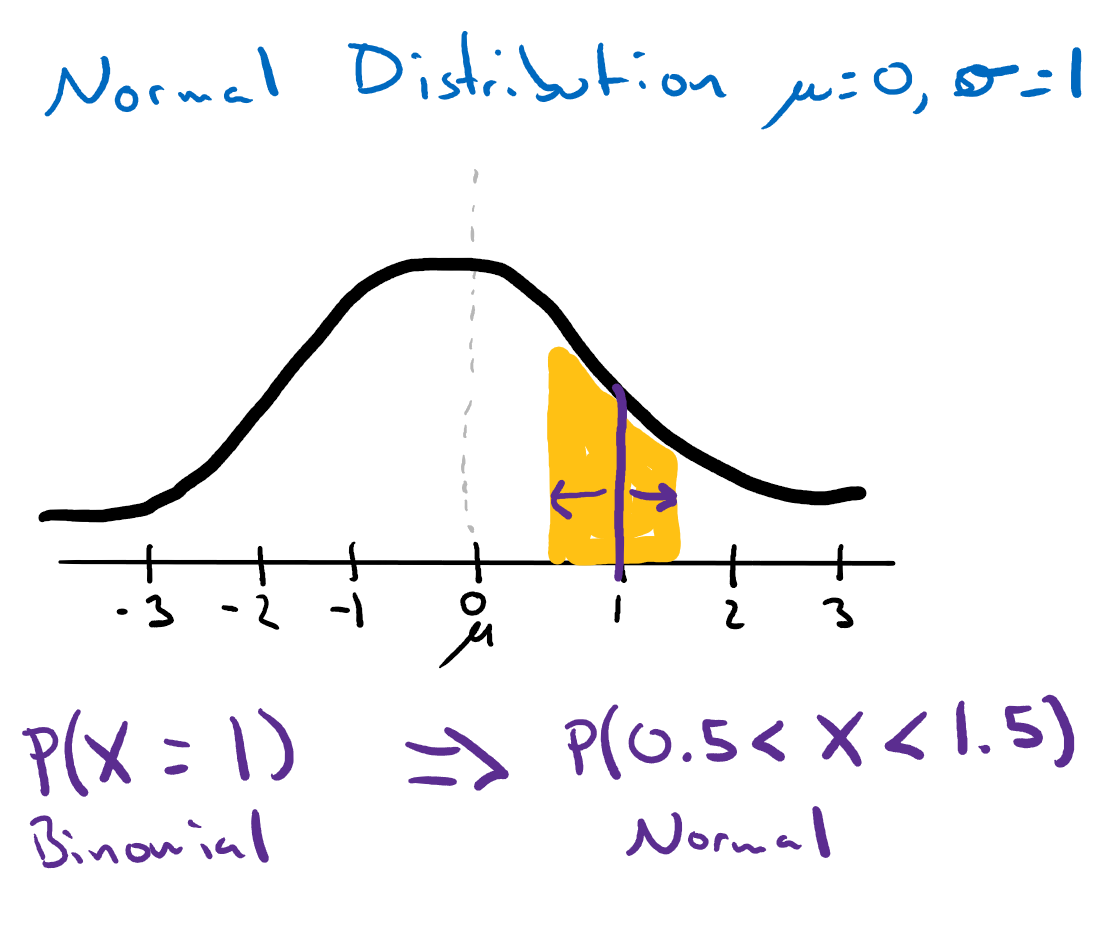 Normal Distribution μ=0, σ=1
-3 -2 -1 0 1 2 3
μ
P(X = 1) ⇒ P(0.5 < X < 1.5)
Binomial Normal